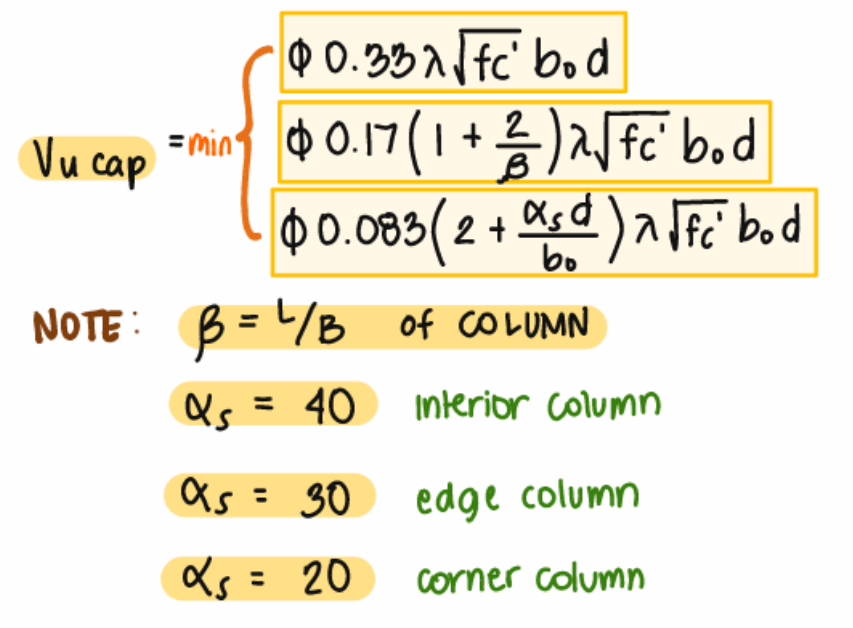 ϕ 0.33 λ √fc' b₀ d
Vu cap = min ϕ 0.17 ( 1 + 2/β ) λ √fc' b₀ d
ϕ 0.083 ( 2 + αₛ d / b₀ ) λ √fc' b₀ d
NOTE: β = L/B of COLUMN
αₛ = 40 Interior column
αₛ = 30 edge column
αₛ = 20 corner column